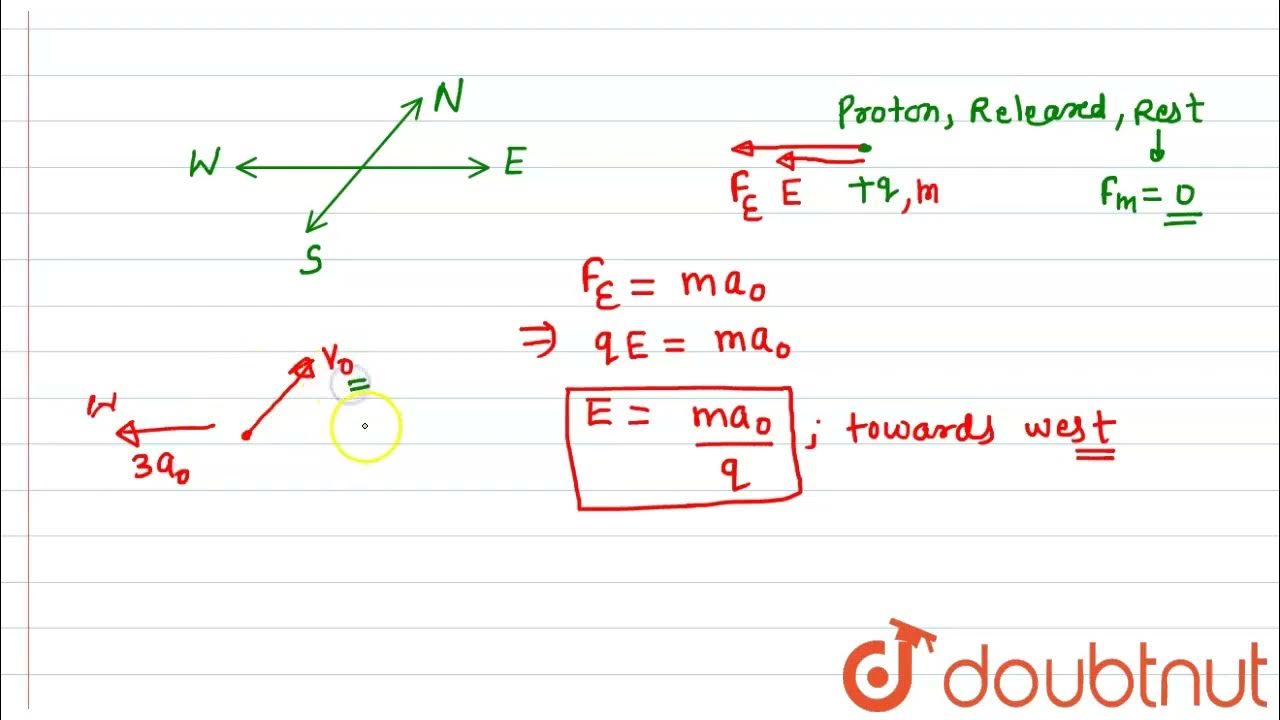 N
W E
S
Proton, Released, Rest
F_E E +q, m
F_m = 0
F_E = ma₀
⇒ qE = ma₀
E = ma₀/q ; towards west
V₀ =
W
3a₀
doubtnut